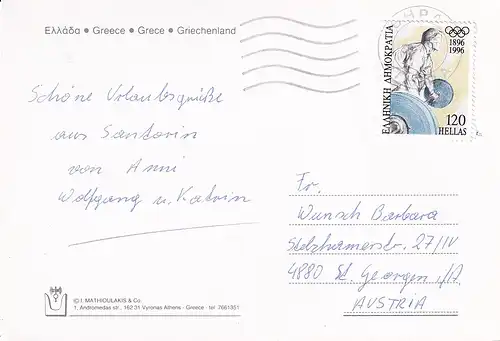 Ελλάδα • Greece • Grece • Griechenland
1896
1996
ΕΛΛΗΝΙΚΗ ΔΗΜΟΚΡΑΤΙΑ
120
HELLAS
Schöne Urlaubsgrüße
aus Santorin
von Anni
Wolfgang u. Katrin
Fr.
Wunsch Barbara
Stelzhamerstr. 27/IV
4880 St. Georgen i/A
AUSTRIA
© I. MATHIOULAKIS & Co.
1, Andromedas str., 162 31 Vyronas Athens - Greece - tel 7661351